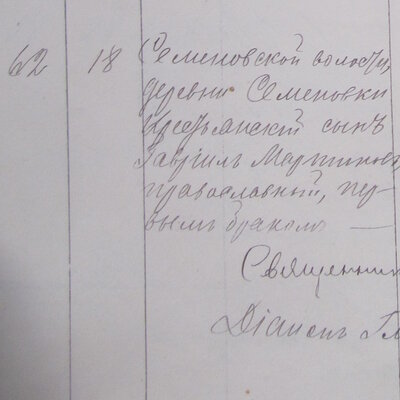 62 18 Семеновской волости,
деревни Семеновки
крестьянскій сынъ
Гавріилъ Мартинов
православный, пер-
вымъ бракомъ —
Священник
Діаконъ Гл